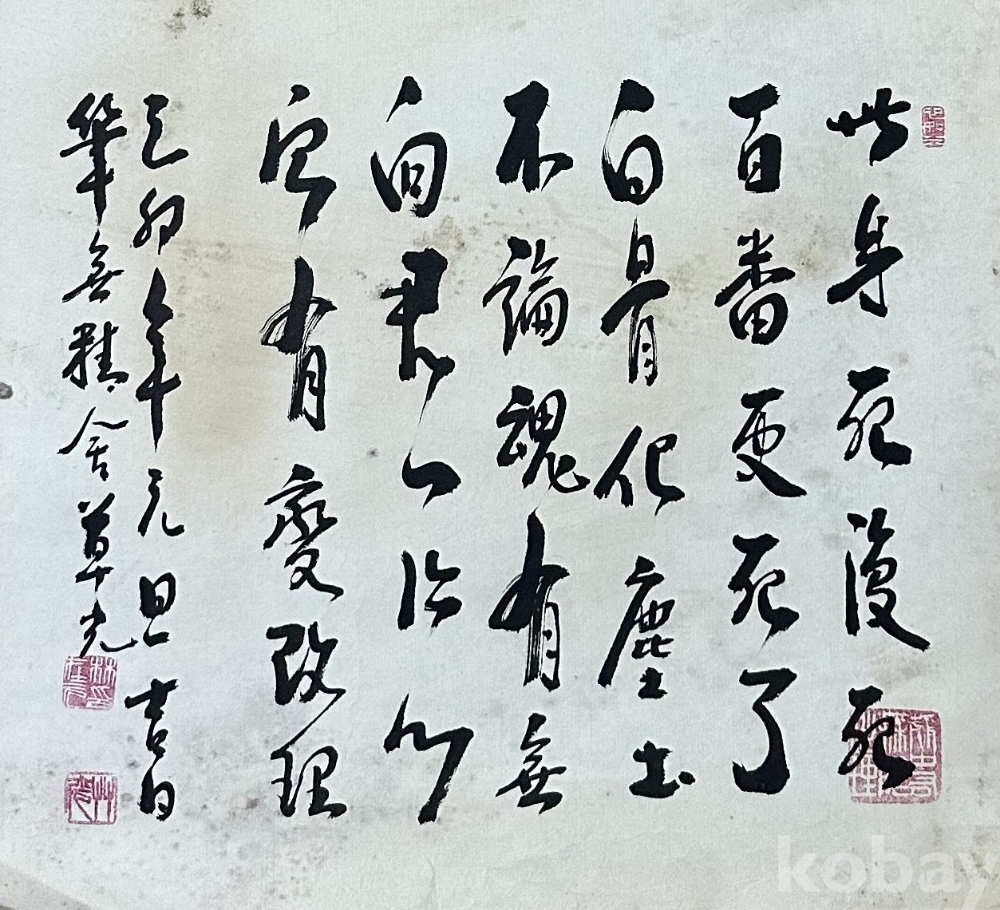 此身死復死
百番更死了
白骨化塵土
不論魂有無
向君一片心
寧有變改理
己卯年元旦吉日
筆無精舍草光
kobay